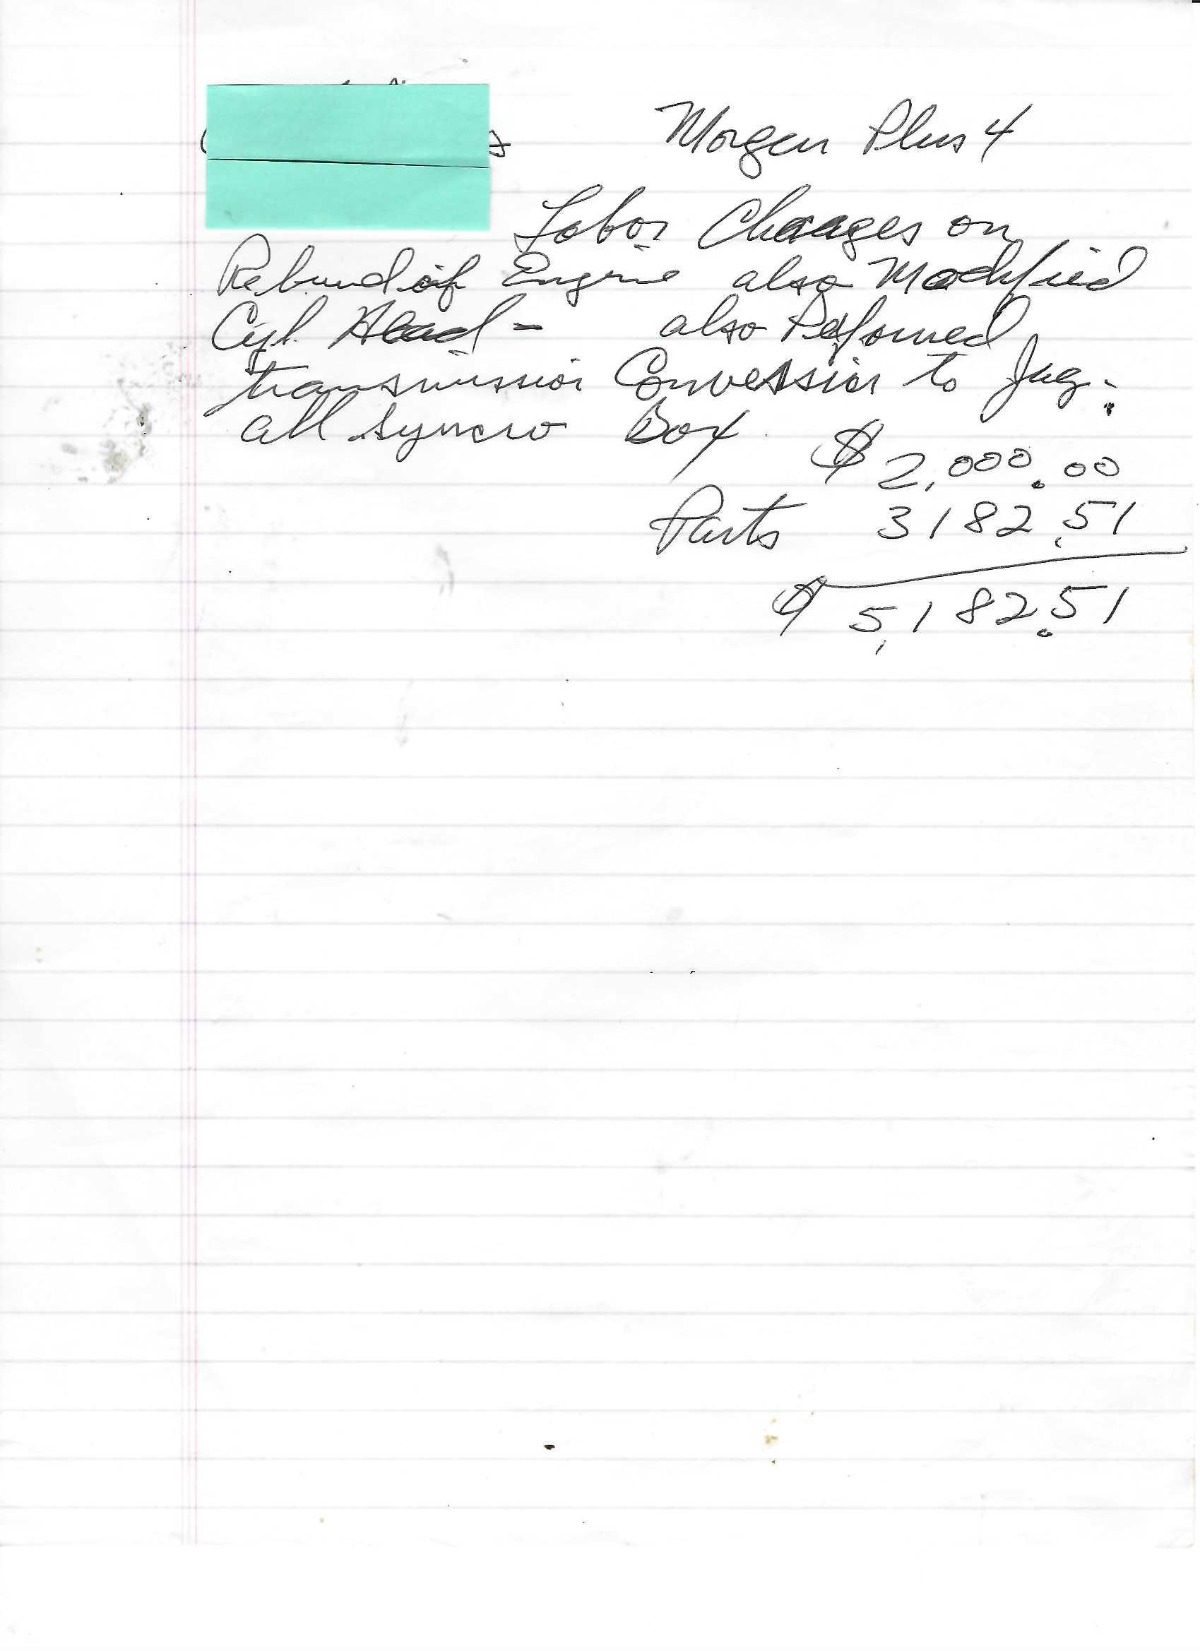 Morgan Plus 4
Labor Chaages on
Rebuild of Engine also Modified
Cyl. Head - also Peformed
transmission Conversion to Jag.
all syncro Box $ 2,000.00
Parts 3182.51
$ 5,182.51